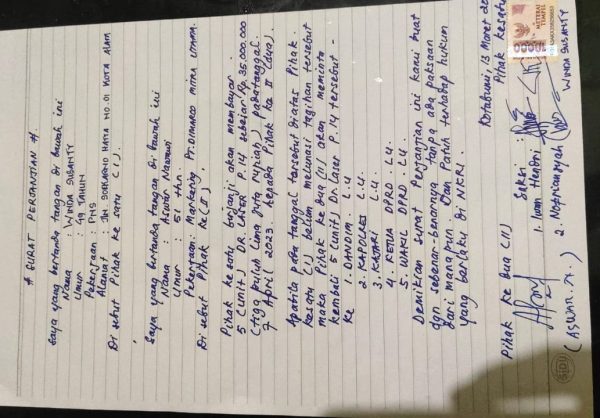 # SURAT PERJANTIAN #
Saya yang bertanda tangan di bawah ini
Nama : WINDA SUSANTY
Umur : 49 TAHUN
Pekerjaan : PNS
Alamat : Jln SOEKARNO HATTA NO.01 KOTA ALAM
Di sebut Pihak ke satu (I).
Saya yang bertanda tangan di bawah ini
Nama : Aswar Nawawi
Umur : 51 thn.
Pekerjaan : Marketing PT. DIMARCO MITRA UTAMA.
Di sebut Pihak ke (II)
Pihak ke satu berjanji akan membayar
5 (Unit) DR. LASER P.14 sebesar Rp. 35.000.000
(tiga puluh Lima juta rupiah) pada tanggal
7 April 2023 kepada Pihak ke II (dua).
Apabila pada tanggal tersebut diatas Pihak
kesatu (I) belum melunasi tagihan tersebut
maka Pihak ke Dua (II) akan meminta
kembali 5 (unit) Dr. Laser P.14 tersebut -
ke 1. DANDIM L.U
2. KAPOLRES L.U.
3. KAJARI L.U.
4. KETUA DPRD L.U.
5 WAKIL DPRD. L.U.
Demikian surat Perjantian ini kami buat
dgn sebenar-benarnya tanpa ada paksaan
dari manapun dan Patuh terhadap hukum
yang berlaku di NKRI.
Kotabumi 13 Maret
Pihak ke dua (II)
Pihak kesatu
METERAI
TEMPEL
WINDA SUSANTY
Saksi :
1. Iwan Hendri
2. Nopriansyah
(ASWAR. N.)
SiDU